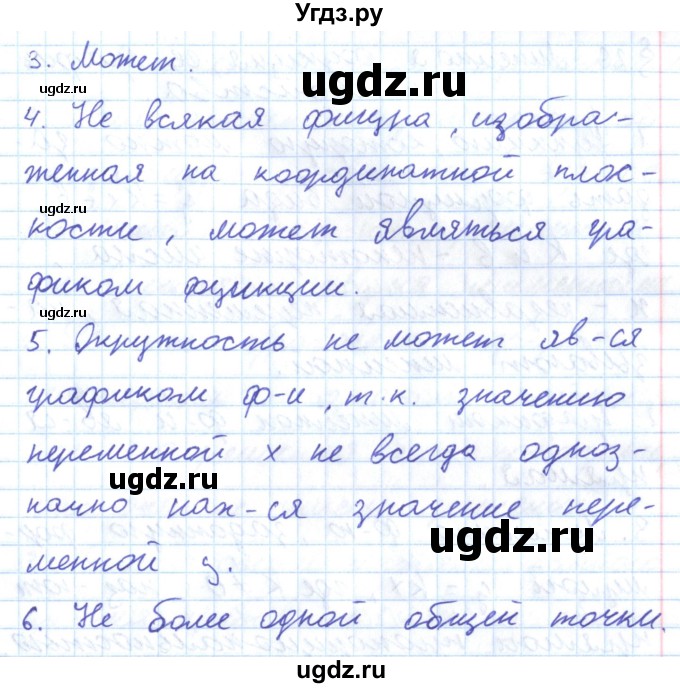 Угдз.ру
3. Может.
ugdz.ru
ugdz.ru
4. Не всякая фигура, изобра-
женная на координатной плос-
ugdz.ru
кости, может являться гра-
ugdz.ru
фиком функции.
ugdz.ru
5. Окружность не может яв-ся
графиком ф-и, т.к. значению
ugdz.ru
переменной x не всегда одноз-
ugdz.ru
начно нах-ся значение пере-
ugdz.ru
менной y.
ugdz.ru
6. Не более одной общей точки.
ugdz.ru